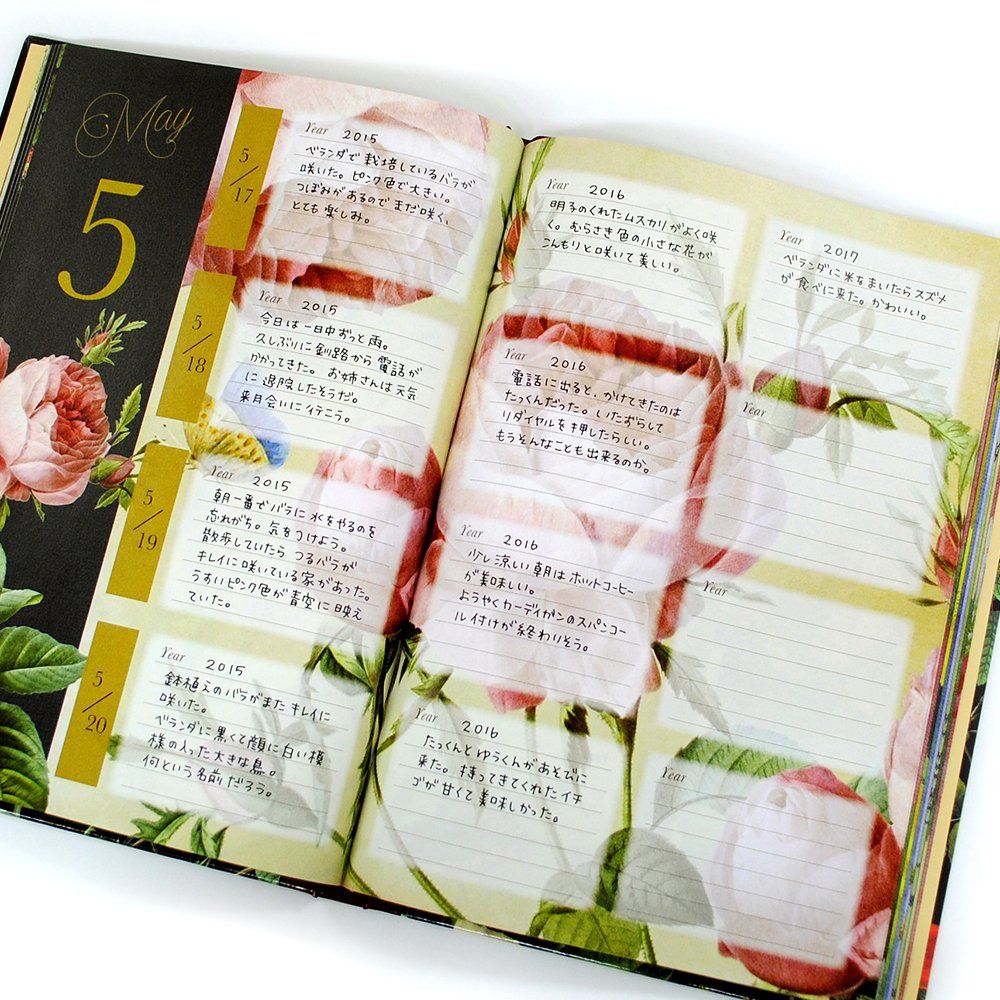 May
5
5/17
Year 2015
ベランダで栽培しているバラが
咲いた。ピンク色で大きい。
つぼみがあるのでまだ咲く。
とても楽しみ。
5/18
Year 2015
今日は一日中おっと雨。
久しぶりに釧路から電話が
かかってきた。お姉さんは元気
に退院したそうだ。
来月会いに行こう。
5/19
Year 2015
朝一番でバラに水をやるのを
忘れがち。気をつけよう。
散歩していたらつるバラが
キレイに咲いている家があった。
うすいピンク色が青空に映え
ていた。
5/20
Year 2015
鉢植えのバラがまたキレイに
咲いた。
ベランダに黒くて顔に白い模
様の入った大きな鳥。
何という名前だろう。
Year 2016
明子のくれたムスカリがよく咲
く。むらさき色の小さな花が
こんもりと咲いて美しい。
Year 2016
電話に出ると、かけてきたのは
たっくんだった。いたずらして
リダイヤルを押したらしい。
もうそんなことも出来るのか。
Year 2016
少し涼しい朝はホットコーヒー
が美味しい。
ようやくカーディガンのスパンコー
ル付けが終わりそう。
Year 2016
たっくんとゆうくんがあそびに
来た。持ってきてくれたイチ
ゴが甘くて美味しかった。
Year 2017
ベランダに米をまいたらスズメ
が食べに来た。かわいい。
Year
Year
Year